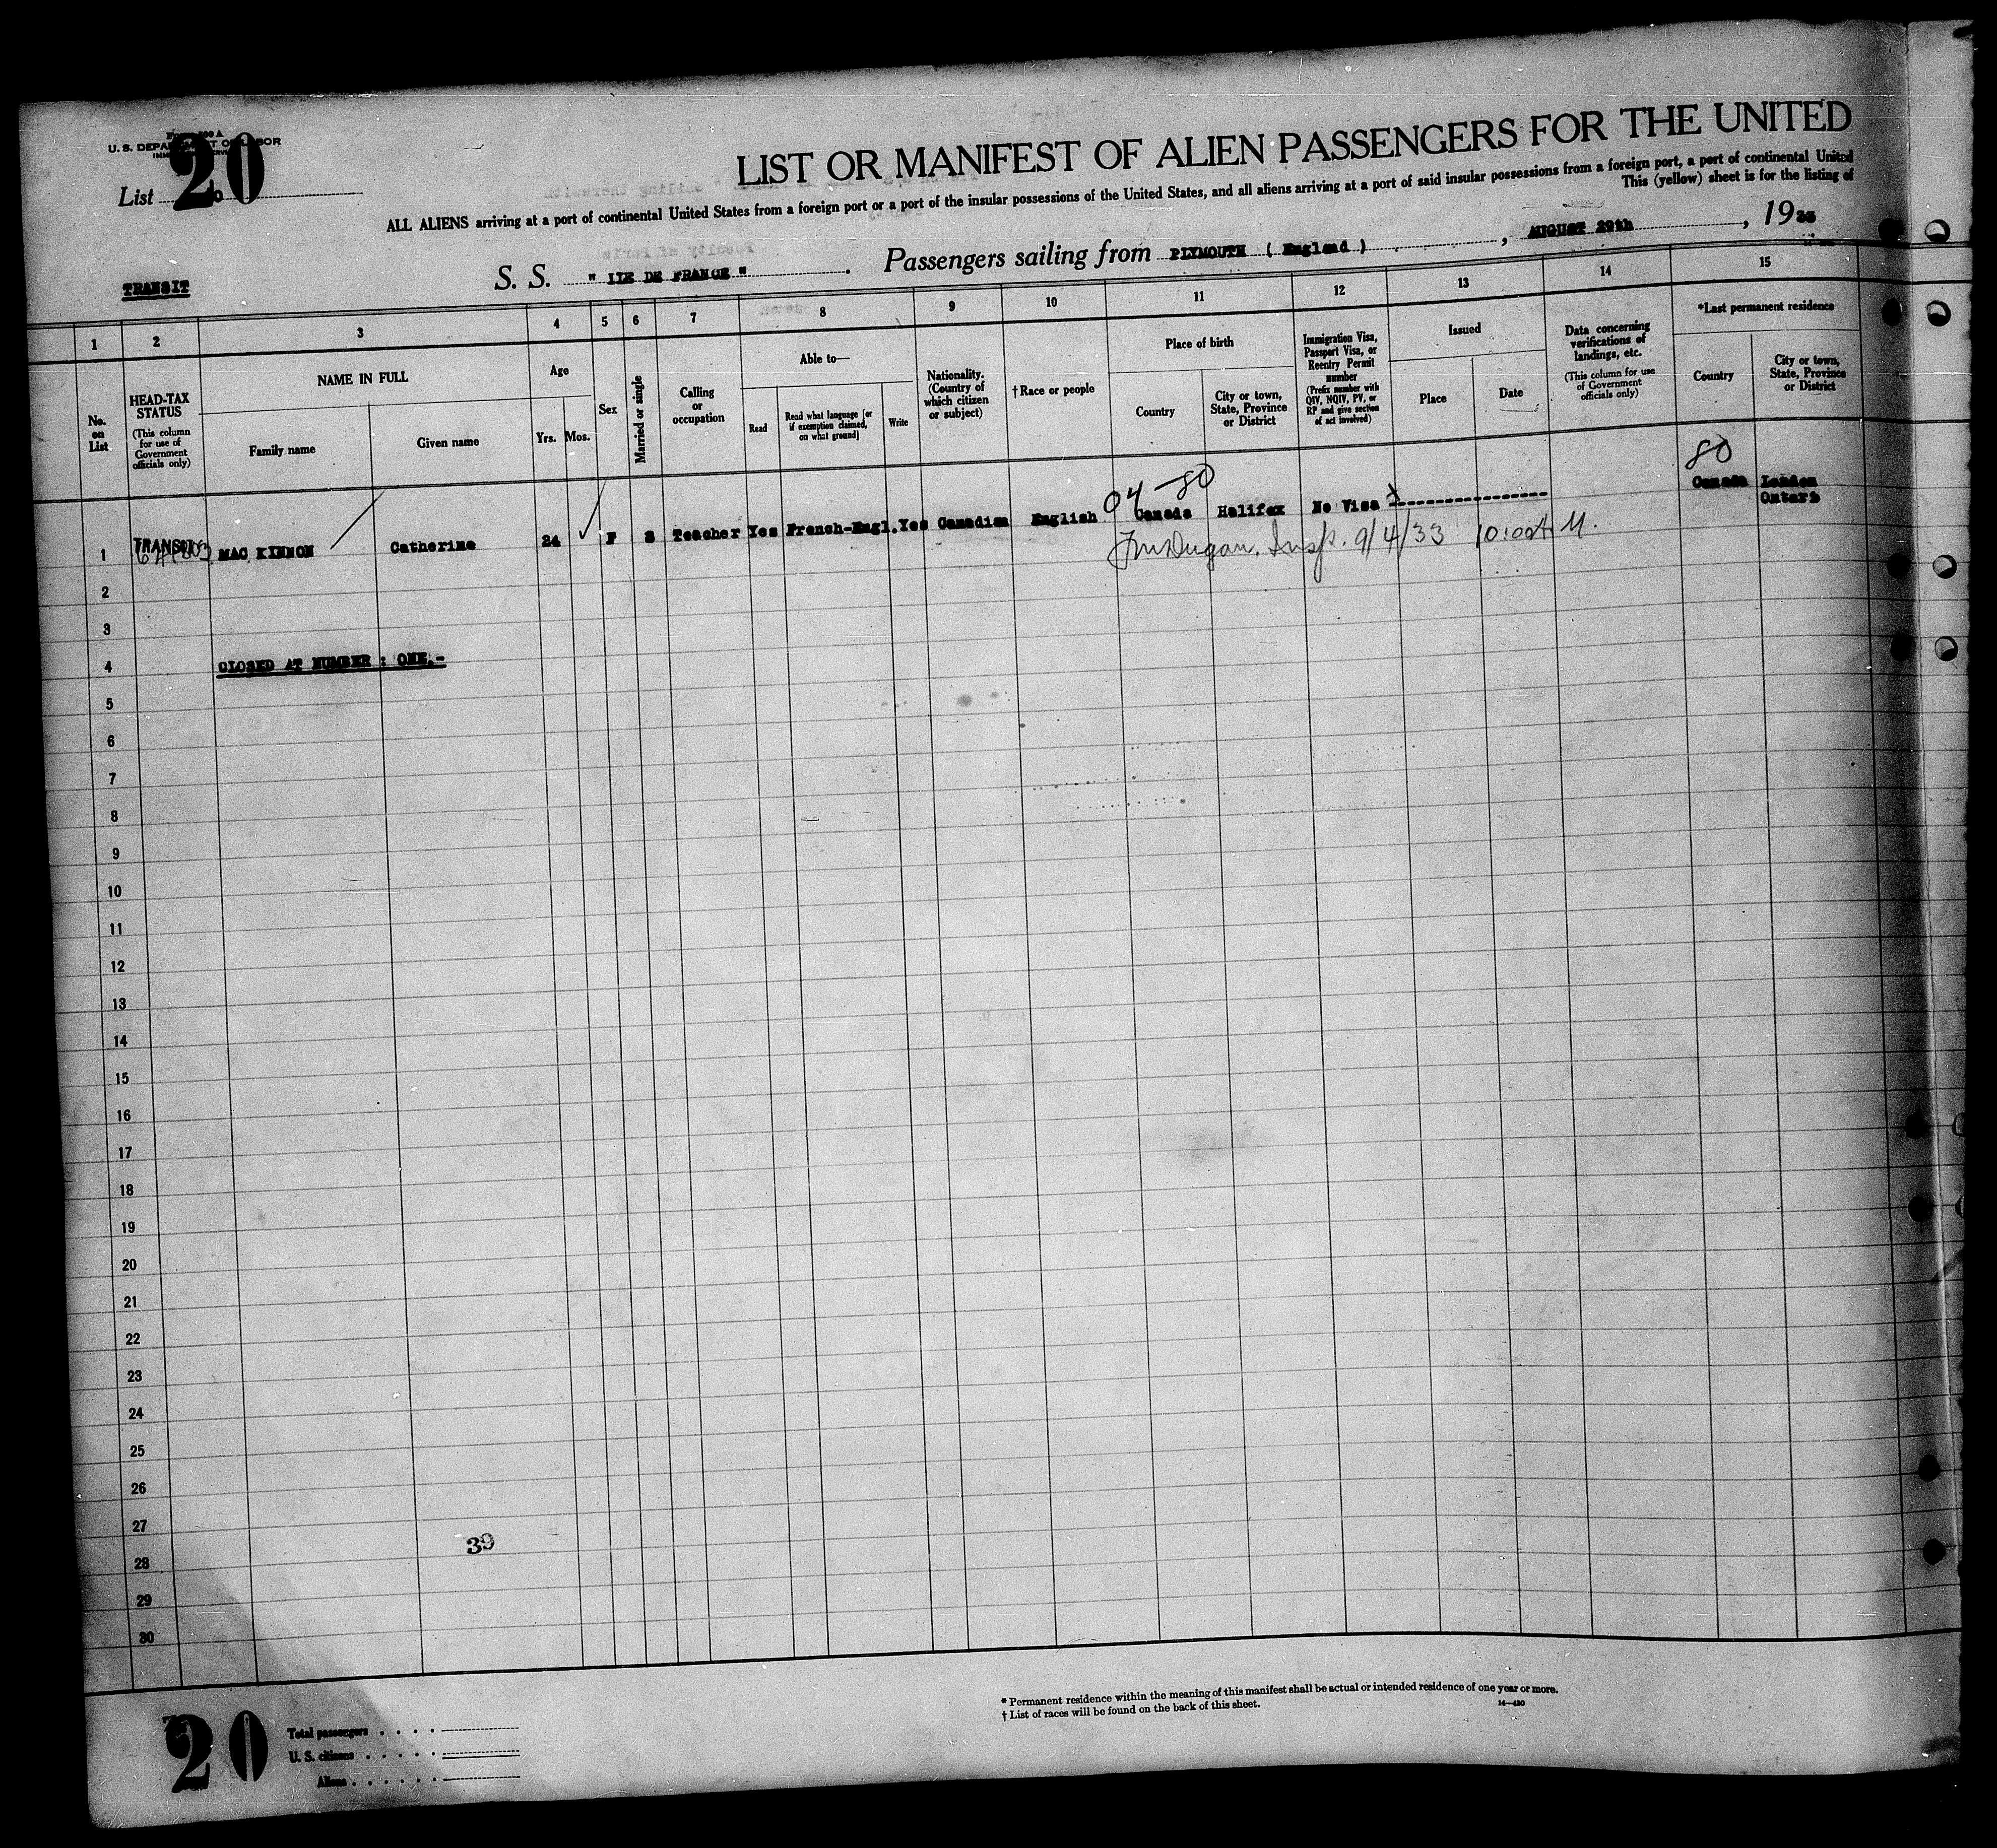 20
U. S. DEPARTMENT OF LABOR
List 20
LIST OR MANIFEST OF ALIEN PASSENGERS FOR THE UNITED
ALL ALIENS arriving at a port of continental United States from a foreign port or a port of the insular possessions of the United States, and all aliens arriving at a port of said insular possessions from a foreign port, a port of continental United
This (yellow) sheet is for the listing of
TRANSIT
S. S. " ILE DE FRANCE " . Passengers sailing from PLYMOUTH ( England ) , AUGUST 29th , 1933
1 2 3 4 5 6 7 8 9 10 11 12 13 14 15
No. on List
HEAD-TAX STATUS
(This column for use of Government officials only)
NAME IN FULL
Family name
Given name
Age
Yrs. Mos.
Sex
Married or single
Calling or occupation
Able to—
Read
Read what language [or if exemption claimed, on what ground]
Write
Nationality. (Country of which citizen or subject)
†Race or people
Place of birth
Country
City or town, State, Province or District
Immigration Visa, Passport Visa, or Reentry Permit number
(Prefix number with QIV, NQIV, PV, or RP and give section of act involved)
Issued
Place
Date
Data concerning verifications of landings, etc.
(This column for use of Government officials only)
*Last permanent residence
Country
City or town, State, Province or District
04-80
80
1 TRANSIT MAC KINNON Catherine 24 F S Teacher Yes French-Engl. Yes Canadian English Canada Halifax No Visa Canada London
Ontario
Insp. 9/4/33 10:00 A M.
2
3
4 CLOSED AT NUMBER : ONE.-
5
6
7
8
9
10
11
12
13
14
15
16
17
18
19
20
21
22
23
24
25
26
27
39
28
29
30
* Permanent residence within the meaning of this manifest shall be actual or intended residence of one year or more.
† List of races will be found on the back of this sheet.
14—430
20
Total passengers
U. S. citizens
Aliens